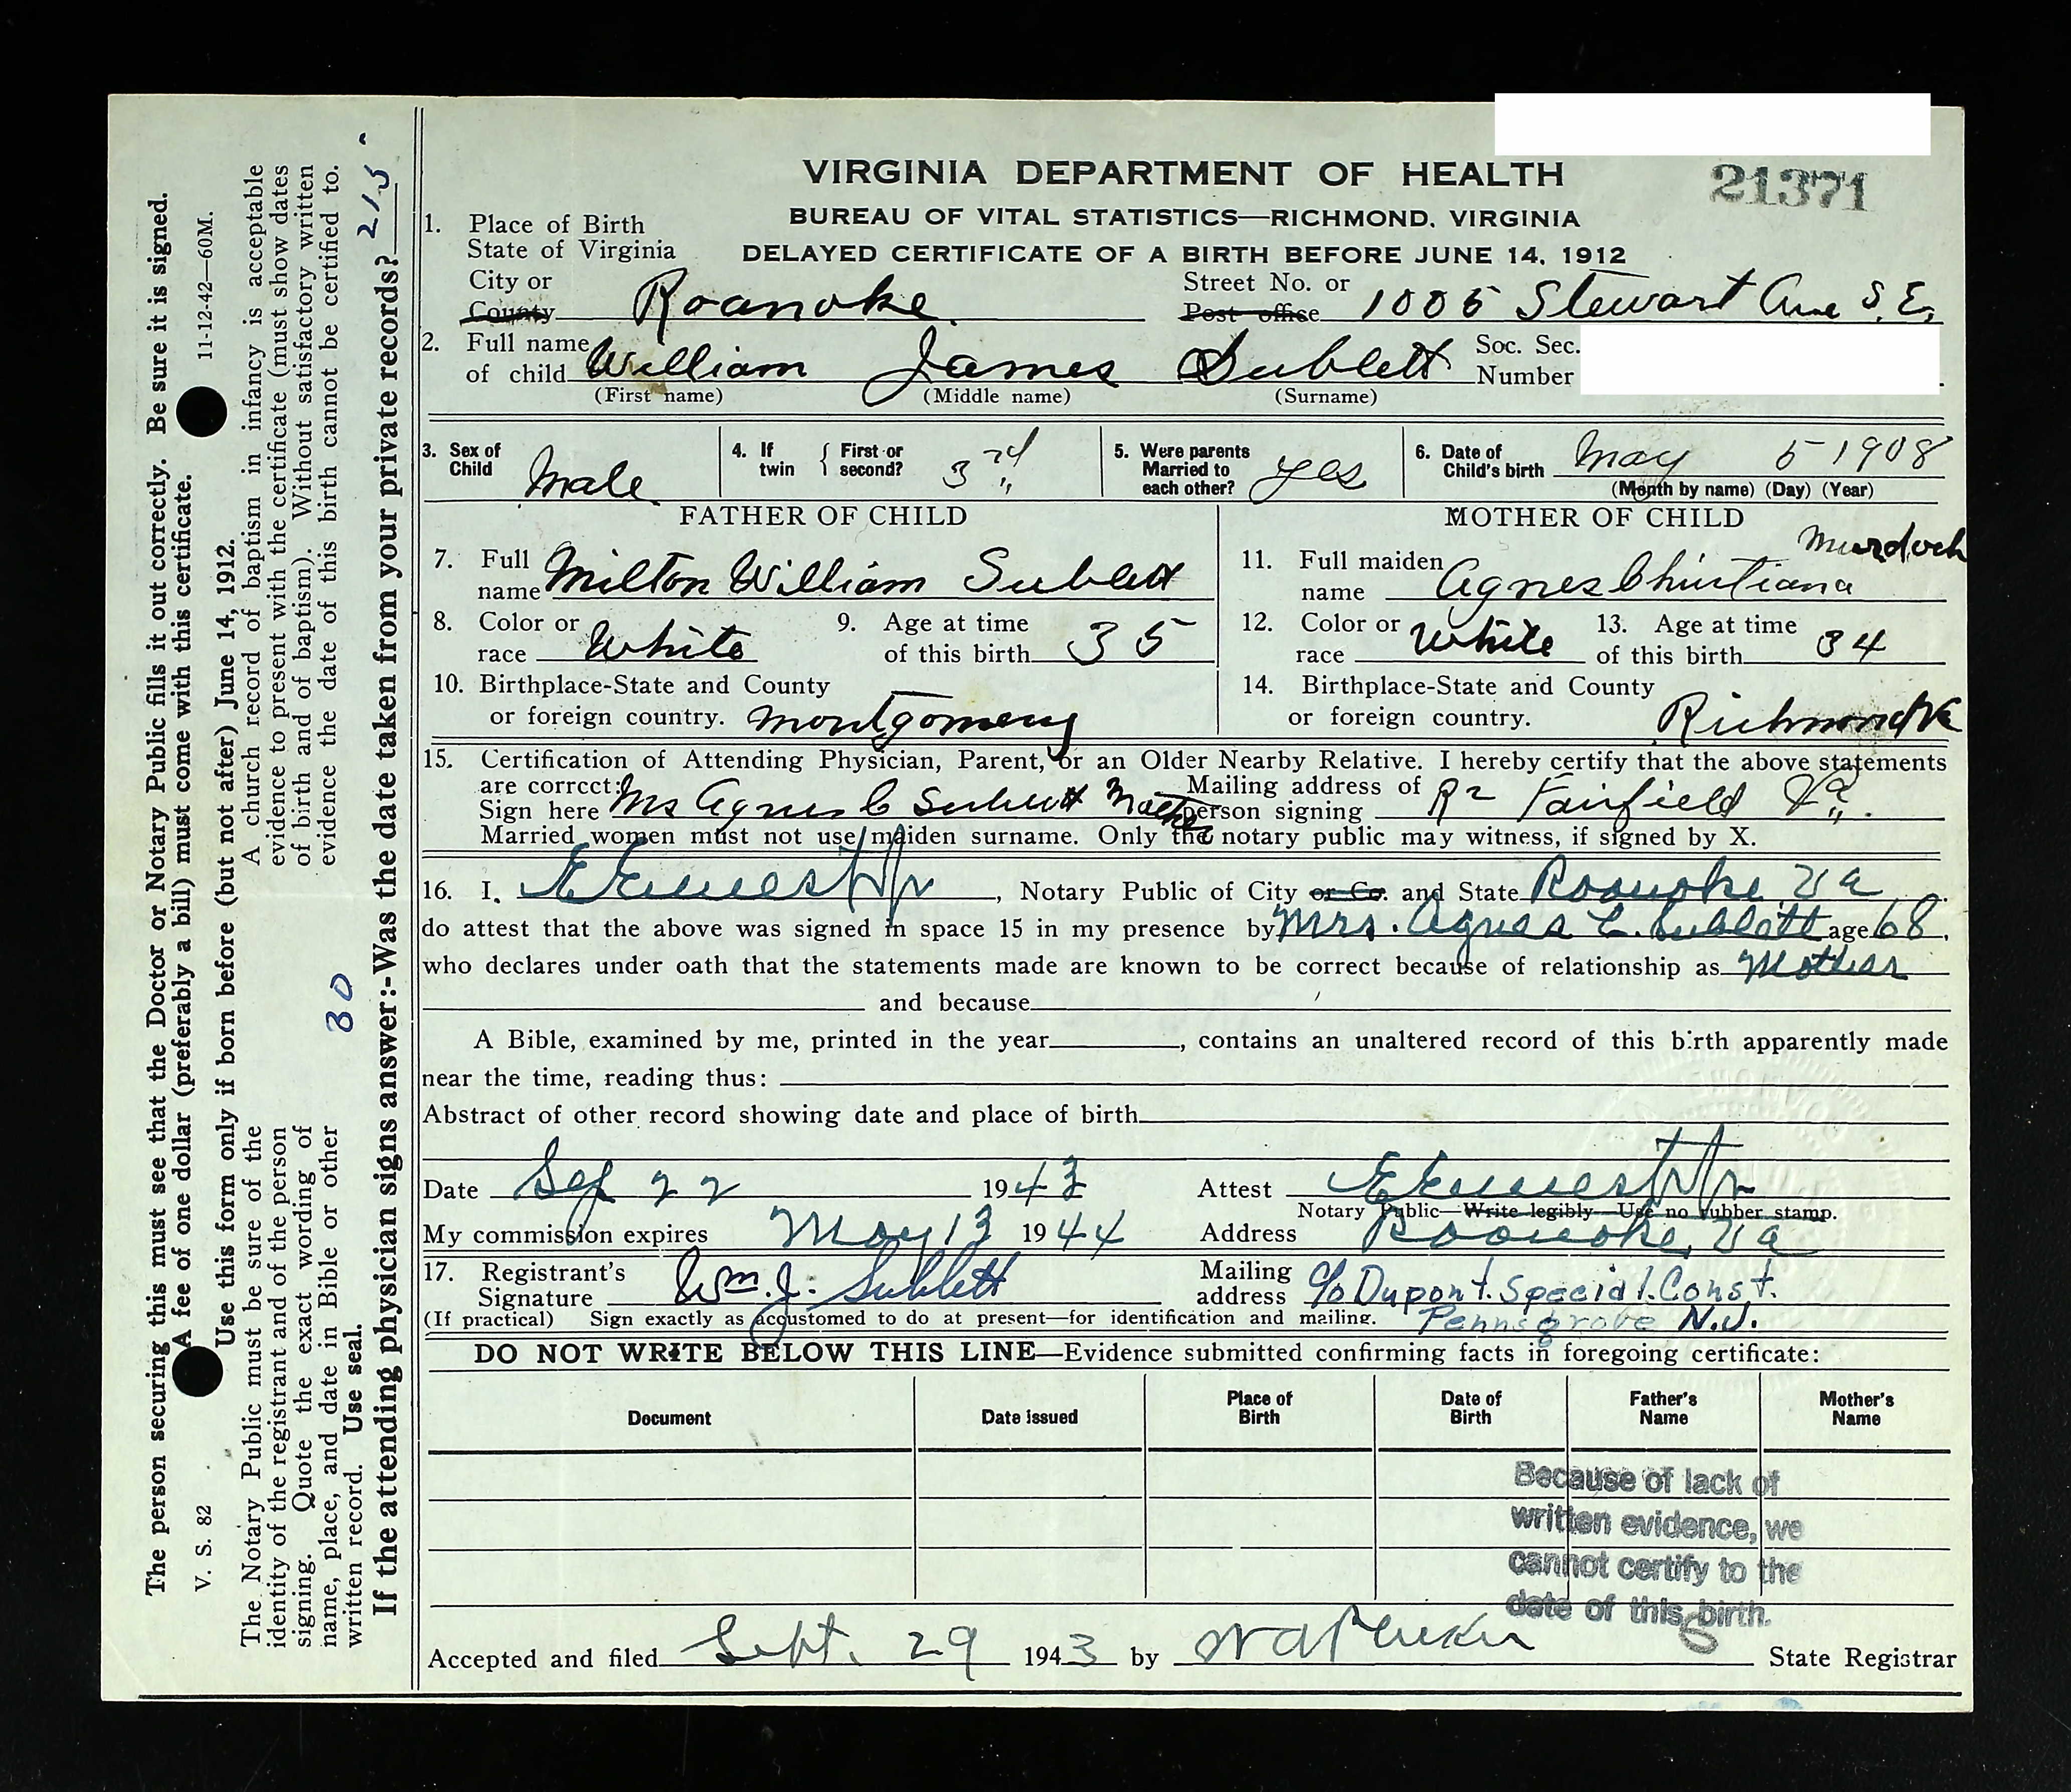 The person securing this must see that the Doctor or Notary Public fills it out correctly. Be sure it is signed.
V. S. 82
A fee of one dollar (preferably a bill) must come with this certificate.
11-12-42—60M.
Use this form only if born before (but not after) June 14, 1912.
The Notary Public must be sure of the
identity of the registrant and of the person
signing. Quote the exact wording of
name, place, and date in Bible or other
written record. Use seal.
A church record of baptism in infancy is acceptable
evidence to present with the certificate (must show dates
of birth and of baptism). Without satisfactory written
evidence the date of this birth cannot be certified to.
30
If the attending physician signs answer:-Was the date taken from your private records?
215
21371
VIRGINIA DEPARTMENT OF HEALTH
BUREAU OF VITAL STATISTICS—RICHMOND, VIRGINIA
DELAYED CERTIFICATE OF A BIRTH BEFORE JUNE 14, 1912
1. Place of Birth
State of Virginia
City or County Roanoke Street No. or Post office 1005 Stewart Ave S.E.
2. Full name of child William James Sublett Soc. Sec. Number
(First name) (Middle name) (Surname)
3. Sex of Child Male 4. If twin { First or second? 3rd 5. Were parents Married to each other? yes 6. Date of Child's birth May 5 1908
(Month by name) (Day) (Year)
FATHER OF CHILD MOTHER OF CHILD
7. Full name Milton William Sublett 11. Full maiden name Agnes Christiana Murdoch
8. Color or race White 9. Age at time of this birth 35 12. Color or race White 13. Age at time of this birth 34
10. Birthplace-State and County or foreign country. Montgomery 14. Birthplace-State and County or foreign country. Richmond Va
15. Certification of Attending Physician, Parent, or an Older Nearby Relative. I hereby certify that the above statements
are correct: Sign here Mrs Agnes C Sublett Mother Mailing address of person signing R 2 Fairfield Va.
Married women must not use maiden surname. Only the notary public may witness, if signed by X.
16. I, , Notary Public of City or Co. and State Roanoke Va
do attest that the above was signed in space 15 in my presence by Mrs. Agnes C. Sublett age 68,
who declares under oath that the statements made are known to be correct because of relationship as Mother
and because
A Bible, examined by me, printed in the year , contains an unaltered record of this birth apparently made
near the time, reading thus:
Abstract of other record showing date and place of birth
Date Sep 22 1943 Attest
Notary Public—Write legibly—Use no rubber stamp.
My commission expires May 13 1944 Address Roanoke, Va
17. Registrant's Signature Wm. J. Sublett Mailing address c/o Dupont. Special. Const.
(If practical) Sign exactly as accustomed to do at present—for identification and mailing. Pennsgrove N.J.
DO NOT WRITE BELOW THIS LINE—Evidence submitted confirming facts in foregoing certificate:
Document Date issued Place of Birth Date of Birth Father's Name Mother's Name
Because of lack of
written evidence, we
cannot certify to the
date of this birth.
Accepted and filed Sept. 29 1943 by State Registrar